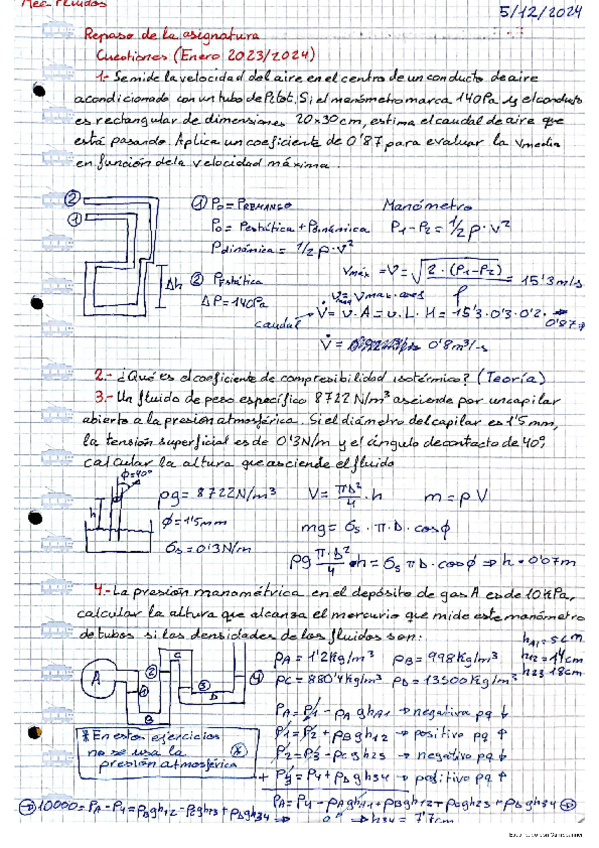 Mec Fluidos
5/12/2024
Repaso de la asignatura
Cuestiones (Enero 2023/2024)
1.- Se mide la velocidad del aire en el centro de un conducto de aire
acondicionado con un tubo de Pitot. Si el manómetro marca 140 Pa y el conducto
es rectangular de dimensiones 20x30cm, estima el caudal de aire que
está pasando. Aplica un coeficiente de 0'87 para evaluar la Vmedia
en función de la velocidad máxima.
② ① Δh
① Po = PREMANSO
Po = Pestática + Pdinámica
Pdinámica = 1/2 ρ·v²
② Pestática
ΔP = 140Pa
Manómetro
P1-P2 = 1/2 ρ·v²
Vmáx = V = √(2·(P1-P2)/ρ) = 15'3 m/s
caudal
V̇ = υ·A = υ·L·H = 15'3·0'3·0'2·0'87
V̇ = 0'8m³/s
2.- ¿Qué es el coeficiente de compresibilidad isotérmico? (Teoría)
3.- Un fluido de peso específico 8722 N/m³ asciende por un capilar
abierto a la presión atmosférica. Si el diámetro del capilar es 1'5mm,
la tensión superficial es de 0'3N/m y el ángulo de contacto de 40º,
calcular la altura que asciende el fluido
φ=40º
h
ρg = 8722N/m³ V = πD²/4 · h m = ρV
ϕ = 1'5mm mg = σs · π · D · cosϕ
σs = 0'3N/m
ρg π·D²/4 ·h = σs π D · cosϕ ⇒ h = 0'07m
4.- La presión manométrica en el depósito de gas A es de 10kPa,
calcular la altura que alcanza el mercurio que mide este manómetro
de tubos si las densidades de los fluidos son:
hA1 = 5cm
h12 = 14cm
h23 18cm
A ① ② C ③ D ④ B
ρA = 1'2kg/m³ ρB = 998kg/m³
ρC = 880'4kg/m³ ρD = 13500kg/m³
PA = P1 - ρA ghA1 → negativa pq ↓
P1 = P2 + ρB gh12 → positivo pq ↑
P2 = P3 - ρC gh23 → negativo pq ↓
+ P3 = P4 + ρD gh34 → positivo pq ↑
* En estos ejercicios
no se usa la
presión atmosférica
PA = P4 - ρAghA1 + ρBgh12 - ρCgh23 + ρDgh34
10000 = PA - P4 = ρBgh12 - ρCgh23 + ρDgh34
h34 = 7'7cm